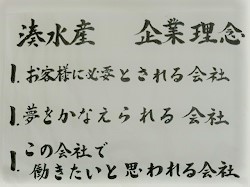 湊水産 企業理念
1. お客様に必要とされる会社
1. 夢をかなえられる会社
1. この会社で
働きたいと思われる会社